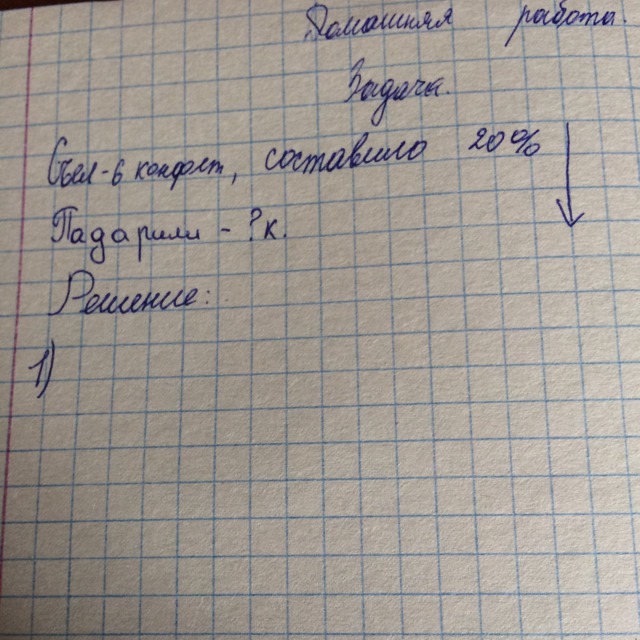 Домашняя работа.
Задача.
Съел - 6 конфет, составило 20%
Падарили - ? к.
Решение:
1)